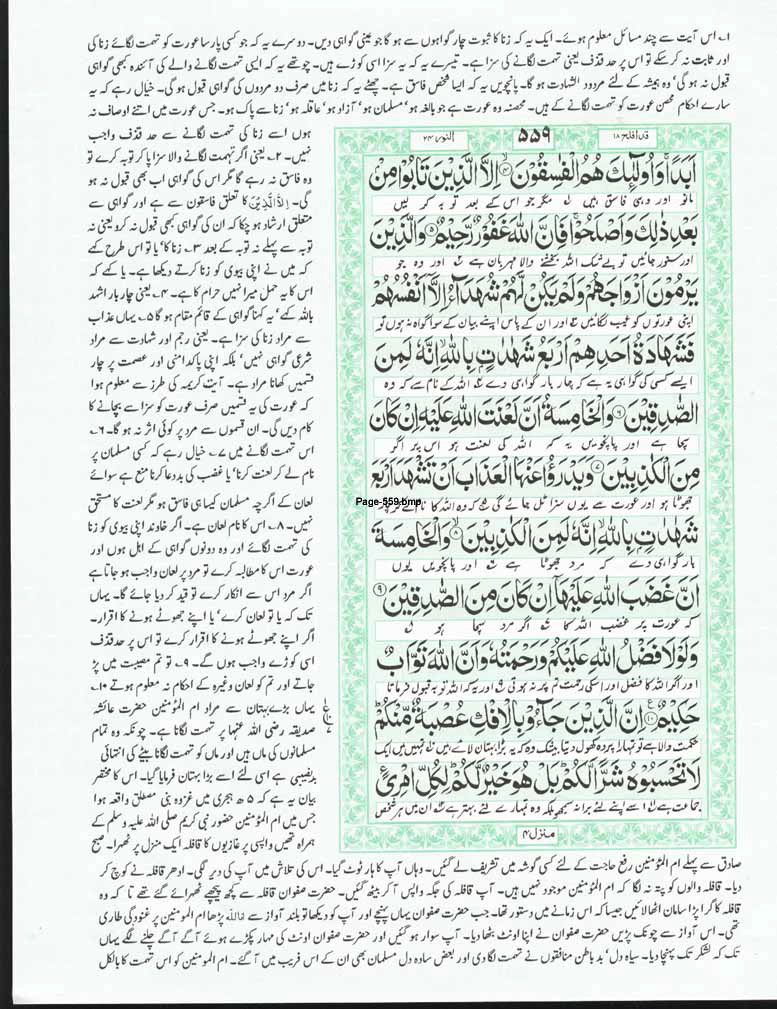 ۱؎ اس آیت سے چند مسائل معلوم ہوئے۔ ایک یہ کہ زنا کا ثبوت چار گواہوں سے ہو گا جو عینی گواہی دیں۔ دوسرے یہ کہ جو کسی پارسا عورت کو تہمت لگائے زنا کی
اور ثابت نہ کر سکے تو اس پر حد قذف یعنی تہمت لگانے کی سزا ہے۔ تیسرے یہ کہ یہ سزا اسی کوڑے ہیں۔ چوتھے یہ کہ ایسی تہمت لگانے والے کی آئندہ کبھی گواہی
قبول نہ ہو گی' وہ ہمیشہ کے لئے مردود الشہادت ہو گا۔ پانچویں یہ کہ ایسا شخص فاسق ہے۔ چھٹے یہ کہ زنا میں صرف دو مردوں کی گواہی قبول ہو گی۔ خیال رہے کہ یہ
سارے احکام محصن عورت کو تہمت لگانے کے ہیں۔ محصنہ وہ عورت ہے جو بالغہ ہو' مسلمان ہو' آزاد ہو' عاقلہ ہو' زنا سے پاک ہو۔ جس عورت میں اتنے اوصاف نہ
ہوں اسے زنا کی تہمت لگانے سے حد قذف واجب
نہیں۔ ۲؎ یعنی اگر تہمت لگانے والا سزا پا کر توبہ کرے تو
وہ فاسق نہ رہے گا مگر اس کی گواہی اب بھی قبول نہ ہو
گی۔ اِلَّا الَّذِیْنَ کا تعلق فاسقون سے ہے اور گواہی سے
متعلق ارشاد ہو چکا کہ ان کی گواہی کبھی قبول نہ کرو یعنی نہ
توبہ سے پہلے نہ توبہ کے بعد ۳؎ زنا کا' یا تو اس طرح کہے
کہ میں نے اپنی بیوی کو زنا کرتے دیکھا ہے۔ یا کہے کہ
اس کا یہ حمل میرا نہیں حرام کا ہے۔ ۴؎ یعنی چار بار اشہد
باللہ کہے' یہ کہنا گواہی کے قائم مقام ہو گا ۵؎ یہاں عذاب
سے مراد زنا کی سزا ہے۔ یعنی رجم اور شہادت سے مراد
شرعی گواہی نہیں' بلکہ اپنی پاکدامنی اور عصمت پر چار
قسمیں کھانا مراد ہے۔ آیت کریمہ کی طرز سے معلوم ہوا
کہ عورت کی یہ قسمیں صرف عورت کو سزا سے بچانے کا
کام دیں گی۔ ان قسموں سے مرد پر کوئی اثر نہ ہو گا۔ ۶؎
اس تہمت لگانے میں ۷؎ خیال رہے کہ کسی مسلمان پر
نام لے کر لعنت کرنا' یا غضب کی بددعا کرنا منع ہے سوائے
لعان کے اگرچہ مسلمان کیسا ہی فاسق ہو مگر لعنت کا مستحق
نہیں۔ ۸؎ اس کا نام لعان ہے۔ اگر خاوند اپنی بیوی کو زنا
کی تہمت لگائے اور وہ دونوں گواہی کے اہل ہوں اور
عورت اس کا مطالبہ کرے تو مرد پر لعان واجب ہو جاتا ہے
اگر مرد اس سے انکار کرے تو قید کر دیا جائے گا۔ یہاں
تک کہ یا تو لعان کرے' یا اپنے جھوٹے ہونے کا اقرار۔
اگر اپنے جھوٹے ہونے کا اقرار کرے تو اس پر حد قذف
اسی کوڑے واجب ہوں گے۔ ۹؎ تو تم مصیبت میں پڑ
جاتے اور تم کو لعان وغیرہ کے احکام نہ معلوم ہوتے ۱۰؎
یہاں بڑے بہتان سے مراد ام المؤمنین حضرت عائشہ
صدیقہ رضی اللہ عنہا پر تہمت لگانا ہے۔ چونکہ وہ تمام
مسلمانوں کی ماں ہیں اور ماں کو تہمت لگانا بیٹے کی انتہائی
بدنصیبی ہے اسی لئے اسے بڑا بہتان فرمایا گیا۔ اس کا مختصر
بیان یہ ہے کہ ۵ھ ہجری میں غزوہ بنی مصطلق واقعہ ہوا
جس میں ام المؤمنین حضور نبی کریم صلی اللہ علیہ وسلم کے
ہمراہ تھیں واپسی پر غازیوں کا قافلہ ایک منزل پر ٹھہرا۔ صبح
قد افلح ۱۸
۵۵۹
النور ۲۴
اَبَدًا ۚ وَاُولٰٓئِكَ هُمُ الْفٰسِقُوْنَ ۙ﴿۴﴾ اِلَّا الَّذِيْنَ تَابُوْا مِنْۢ
مانو اور وہی فاسق ہیں مگر جو اس کے بعد توبہ کر لیں
بَعْدِ ذٰلِكَ وَاَصْلَحُوْا ۚ فَاِنَّ اللّٰهَ غَفُوْرٌ رَّحِيْمٌ ﴿۵﴾ وَالَّذِيْنَ
اور سنور جائیں تو بے شک اللہ بخشنے والا مہربان ہے اور وہ جو
يَرْمُوْنَ اَزْوَاجَهُمْ وَلَمْ يَكُنْ لَّهُمْ شُهَدَآءُ اِلَّآ اَنْفُسُهُمْ
اپنی عورتوں کو عیب لگائیں اور ان کے پاس اپنے بیان کے سوا گواہ نہ ہوں تو
فَشَهَادَةُ اَحَدِهِمْ اَرْبَعُ شَهٰدٰتٍۭ بِاللّٰهِ ۙ اِنَّهٗ لَمِنَ
ایسے کسی کی گواہی یہ ہے کہ چار بار گواہی دے اللہ کے نام سے کہ وہ
الصّٰدِقِيْنَ ﴿۶﴾ وَالْخَامِسَةُ اَنَّ لَعْنَتَ اللّٰهِ عَلَيْهِ اِنْ كَانَ
سچا ہے اور پانچویں یہ کہ اللہ کی لعنت ہو اس پر اگر
مِنَ الْكٰذِبِيْنَ ﴿۷﴾ وَيَدْرَؤُا عَنْهَا الْعَذَابَ اَنْ تَشْهَدَ اَرْبَعَ
جھوٹا ہو اور عورت سے یوں سزا ٹل جائے گی کہ وہ اللہ کا نام لے کر چار
Page-559.bmp
شَهٰدٰتٍۭ بِاللّٰهِ ۙ اِنَّهٗ لَمِنَ الْكٰذِبِيْنَ ۙ﴿۸﴾ وَالْخَامِسَةَ
بار گواہی دے کہ مرد جھوٹا ہے اور پانچویں یوں
اَنَّ غَضَبَ اللّٰهِ عَلَيْهَآ اِنْ كَانَ مِنَ الصّٰدِقِيْنَ ﴿۹﴾
کہ عورت پر غضب اللہ کا اگر مرد سچا ہو
وَلَوْلَا فَضْلُ اللّٰهِ عَلَيْكُمْ وَرَحْمَتُهٗ وَاَنَّ اللّٰهَ تَوَّابٌ
اور اگر اللہ کا فضل اور اسکی رحمت تم پر نہ ہوتی اور یہ کہ اللہ توبہ قبول فرماتا
حَكِيْمٌ ﴿۱۰﴾ اِنَّ الَّذِيْنَ جَآءُوْ بِالْاِفْكِ عُصْبَةٌ مِّنْكُمْ ؕ
حکمت والا ہے تو تمہارا پردہ کھول دیتا بیشک وہ کہ یہ بڑا بہتان لائے ہیں تمہیں میں ایک
لَا تَحْسَبُوْهُ شَرًّا لَّكُمْ ؕ بَلْ هُوَ خَيْرٌ لَّكُمْ ؕ لِكُلِّ امْرِئٍ
جماعت ہے اسے اپنے لئے برا نہ سمجھو بلکہ وہ تمہارے لئے بہتر ہے ان میں ہر شخص
منزل ۴
صادق سے پہلے ام المؤمنین رفع حاجت کے لئے کسی گوشہ میں تشریف لے گئیں۔ وہاں آپ کا ہار ٹوٹ گیا۔ اس کی تلاش میں آپ کی دیر لگی۔ ادھر قافلہ نے کوچ کر
دیا۔ قافلہ والوں کو پتہ نہ لگا کہ ام المؤمنین موجود نہیں ہیں۔ آپ قافلہ کی جگہ واپس آ کر بیٹھ گئیں۔ حضرت صفوان قافلہ سے کچھ پیچھے ٹھہرائے گئے تھے تا کہ وہ
قافلہ کا گرا پڑا سامان اٹھا لائیں جیسا کہ اس زمانے میں دستور تھا۔ جب حضرت صفوان یہاں پہنچے اور آپ کو دیکھا تو بلند آواز سے پڑھا ام المؤمنین پر غنودگی طاری
تھی۔ اس آواز سے چونک پڑیں حضرت صفوان نے اپنا اونٹ بٹھا دیا۔ آپ سوار ہو گئیں اور حضرت صفوان اونٹ کی مہار پکڑے ہوئے آگے آگے چلنے لگے یہاں
تک کہ لشکر تک پہنچا دیا۔ سیاہ دل' بد باطن منافقوں نے تہمت لگا دی اور بعض سادہ دل مسلمان بھی ان کے اس فریب میں آ گئے۔ ام المؤمنین کو اس تہمت کا بالکل